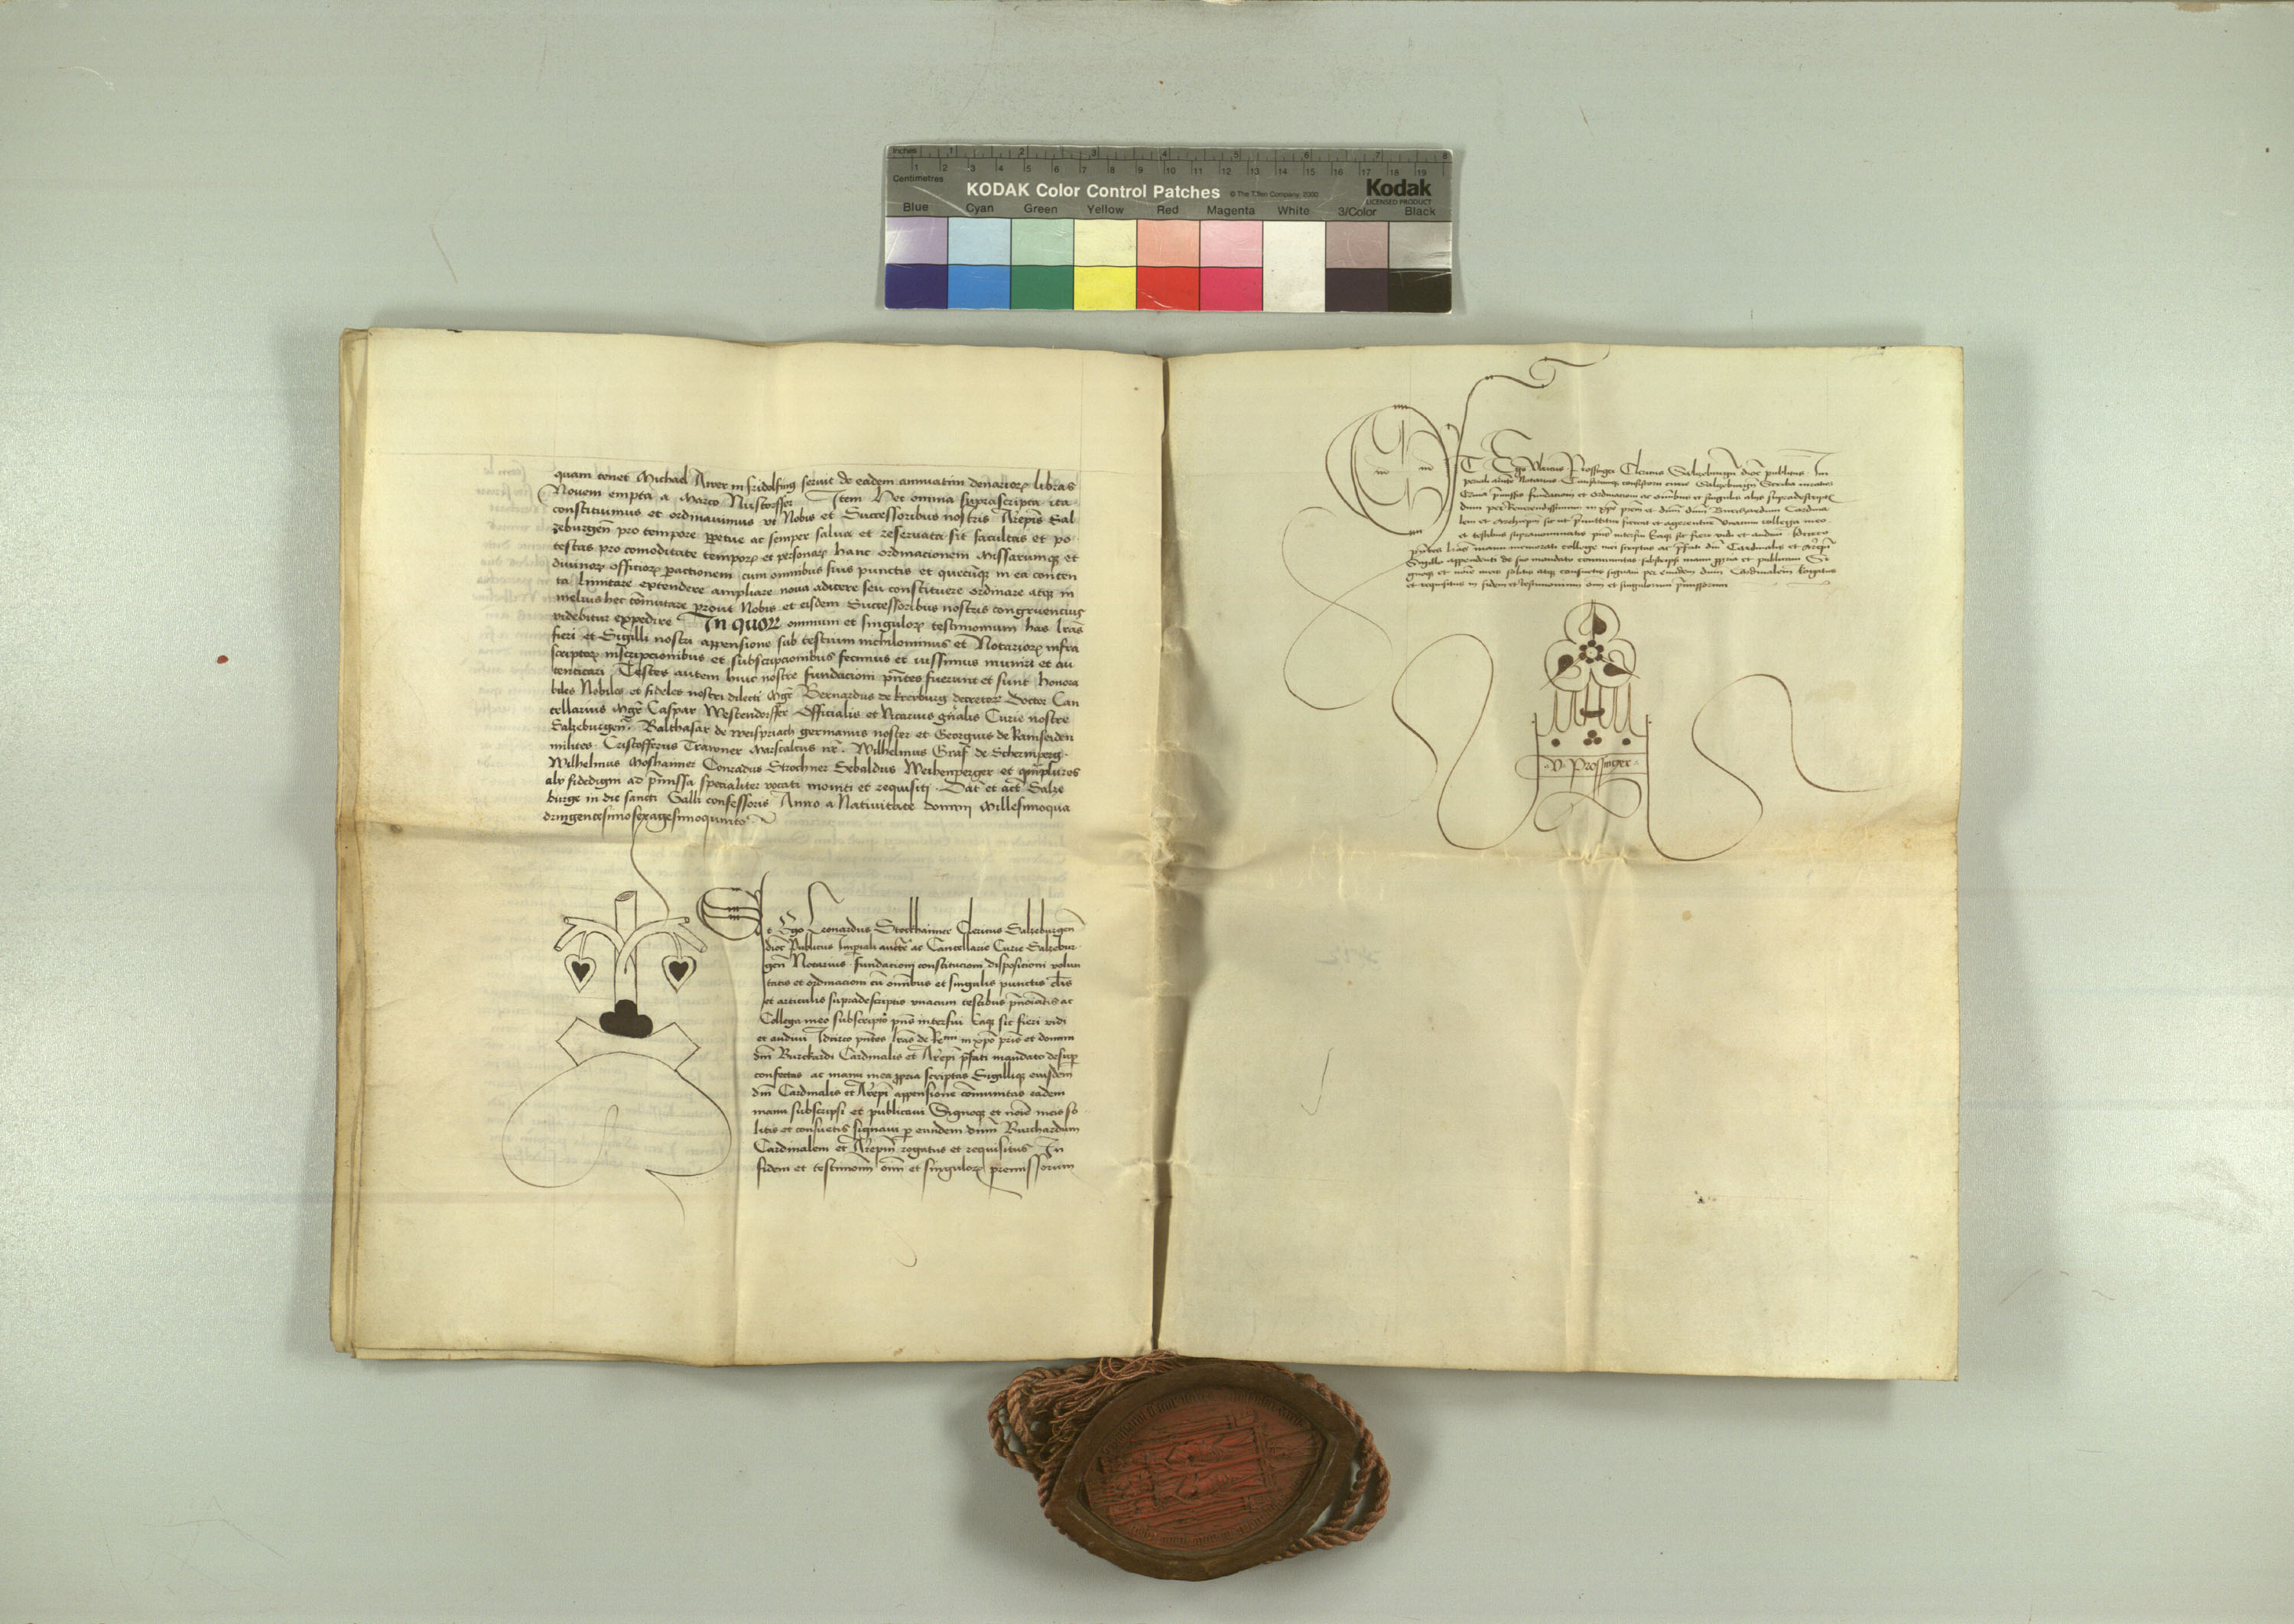 Inches 1 2 3 4 5 6 7 8
1 2 3 4 5 6 7 8 9 10 11 12 13 14 15 16 17 18 19
Centimetres
KODAK Color Control Patches © The Tiffen Company, 2000 Kodak
LICENSED PRODUCT
Blue Cyan Green Yellow Red Magenta White 3/Color Black
quam tenet Michael Awer in fridolfing seruit de eadem annuatim denarioꝝ libras
Nouem empta a Marco Nustorffer Item Hec omnia suprascripta ita
constituimus et ordinauimus vt Nobis et Successoribus nostris Ar̄epīs Sal
zeburgen̄ pro tempore ꝑpetue ac semper salua et reseruata sit facultas et po
testas pro comoditate tempoꝝ et personaꝝ hanc ordinacionem Missarumqꝫ et
diuinoꝝ officioꝝ ꝑactionem cum omnibus suis punctis et quecūqꝫ in ea conten
ta limitare extendere ampliare noua adicere seu constituere ordinare atqꝫ in
melius hec cōmutare prout Nobis et eisdem Successoribus nostris congruencius
videbitur expedire In quoꝝ omnium et singuloꝝ testimonium has lr̄as
fieri et Sigilli nostri appensione sub testium nichilominus et Notarioꝝ infra
scriptoꝝ inscripcionibus et subscripcionibus fecimus et iussimus muniri et au
tenticari Testes autem huic nostre fundacioni pn̄tes fuerunt et sunt Honora
biles Nobiles et fideles nostri dilecti Mgr̄ Bernardus de Krenburg decretoꝝ Doctor Can
cellarius Mgr̄ Caspar Westendorffer Officialis et Vicarius gn̄alis Curie nostre
Salzeburgen̄ Balthasar de Weispriach germanus noster et Georgius de Ramseiden
milites Cristofferus Trawner Marscalcus nr̄ Wilhelmus Graf de Schermperg
Wilhelmus Moshaimer Conradus Strochner Sebaldus et qm̄plures
alij fidedigni ad p̄missa specialiter vocati moniti et requisiti Dat̄ et act̄ Salze
burge in die sancti Galli confessoris Anno a Natiuitate domini Millesimoqua
dringentesimosexagesimoquinto
Et Ego Leonardus Stockhaimer Clericus Salzeburgen̄
dioc̄ Publicus Imp̄iali auctē ac Cancellarie Curie Salzebur
gen̄ Notarius fundacioni constitucioni disposicioni volun
tatis et ordinacioni cū om̄ibus et singulis punctis
et articulis supradescriptis vnacum testibus ac
Collega meo subscripto pn̄s interfui Eaqꝫ sic fieri vidi
et audiui Idcirco pn̄tes lr̄as de Rᵐⁱ in xp̄o pr̄is et domini
dn̄i Burckardi Cardinalis et Ar̄epī p̄fati mandato desuꝑ
confectas ac manu mea ꝓpria scriptas Sigilliqꝫ eiusdem
dn̄i Cardinalis et Ar̄epī appensione cōmunitas eadem
manu subscripsi et publicaui Signoqꝫ et noīe meis so
litis et consuetis signaui ꝑ eundem dn̄m Burchardum
Cardinalem et Ar̄epm̄ rogatus et requisitus In
fidem et testimoniū om̄i et singuloꝝ premissorum
ET Ego Vlricus Prossinger Clericus Salzeburgen̄ dioc̄ publicus Im
periali auctē Notarius Causarumqꝫ consistorii curie Salzeburgen̄ Scriba iuratus
Quia p̄missis fundacioni et ordinacioni ac om̄ibus et singulis aliis supradescriptis
dum per Reuerendissimum in xp̄o pr̄em et dn̄m dn̄m Burckardum Cardina
lem et Archiep̄m sic vt p̄mittitur fierent et agerentur vnacum collega meo
et testibus supranominatis pn̄s interfui Eaqꝫ sic fieri vidi et audiui Idcirco
pn̄tes lr̄as manu memorati college mei scriptas ac p̄fati dn̄i Cardinalis et Ar̄epī
Sigillo appendenti de suo mandato communitas subscripsi manu ꝓpria et publicaui Si
gnoqꝫ et noīe meis solitis atqꝫ consuetis signaui per eundem dn̄m Cardinalem Rogatus
et requisitus in fidem et testimonium om̄i et singulorum p̄missorum
V. Prossinger